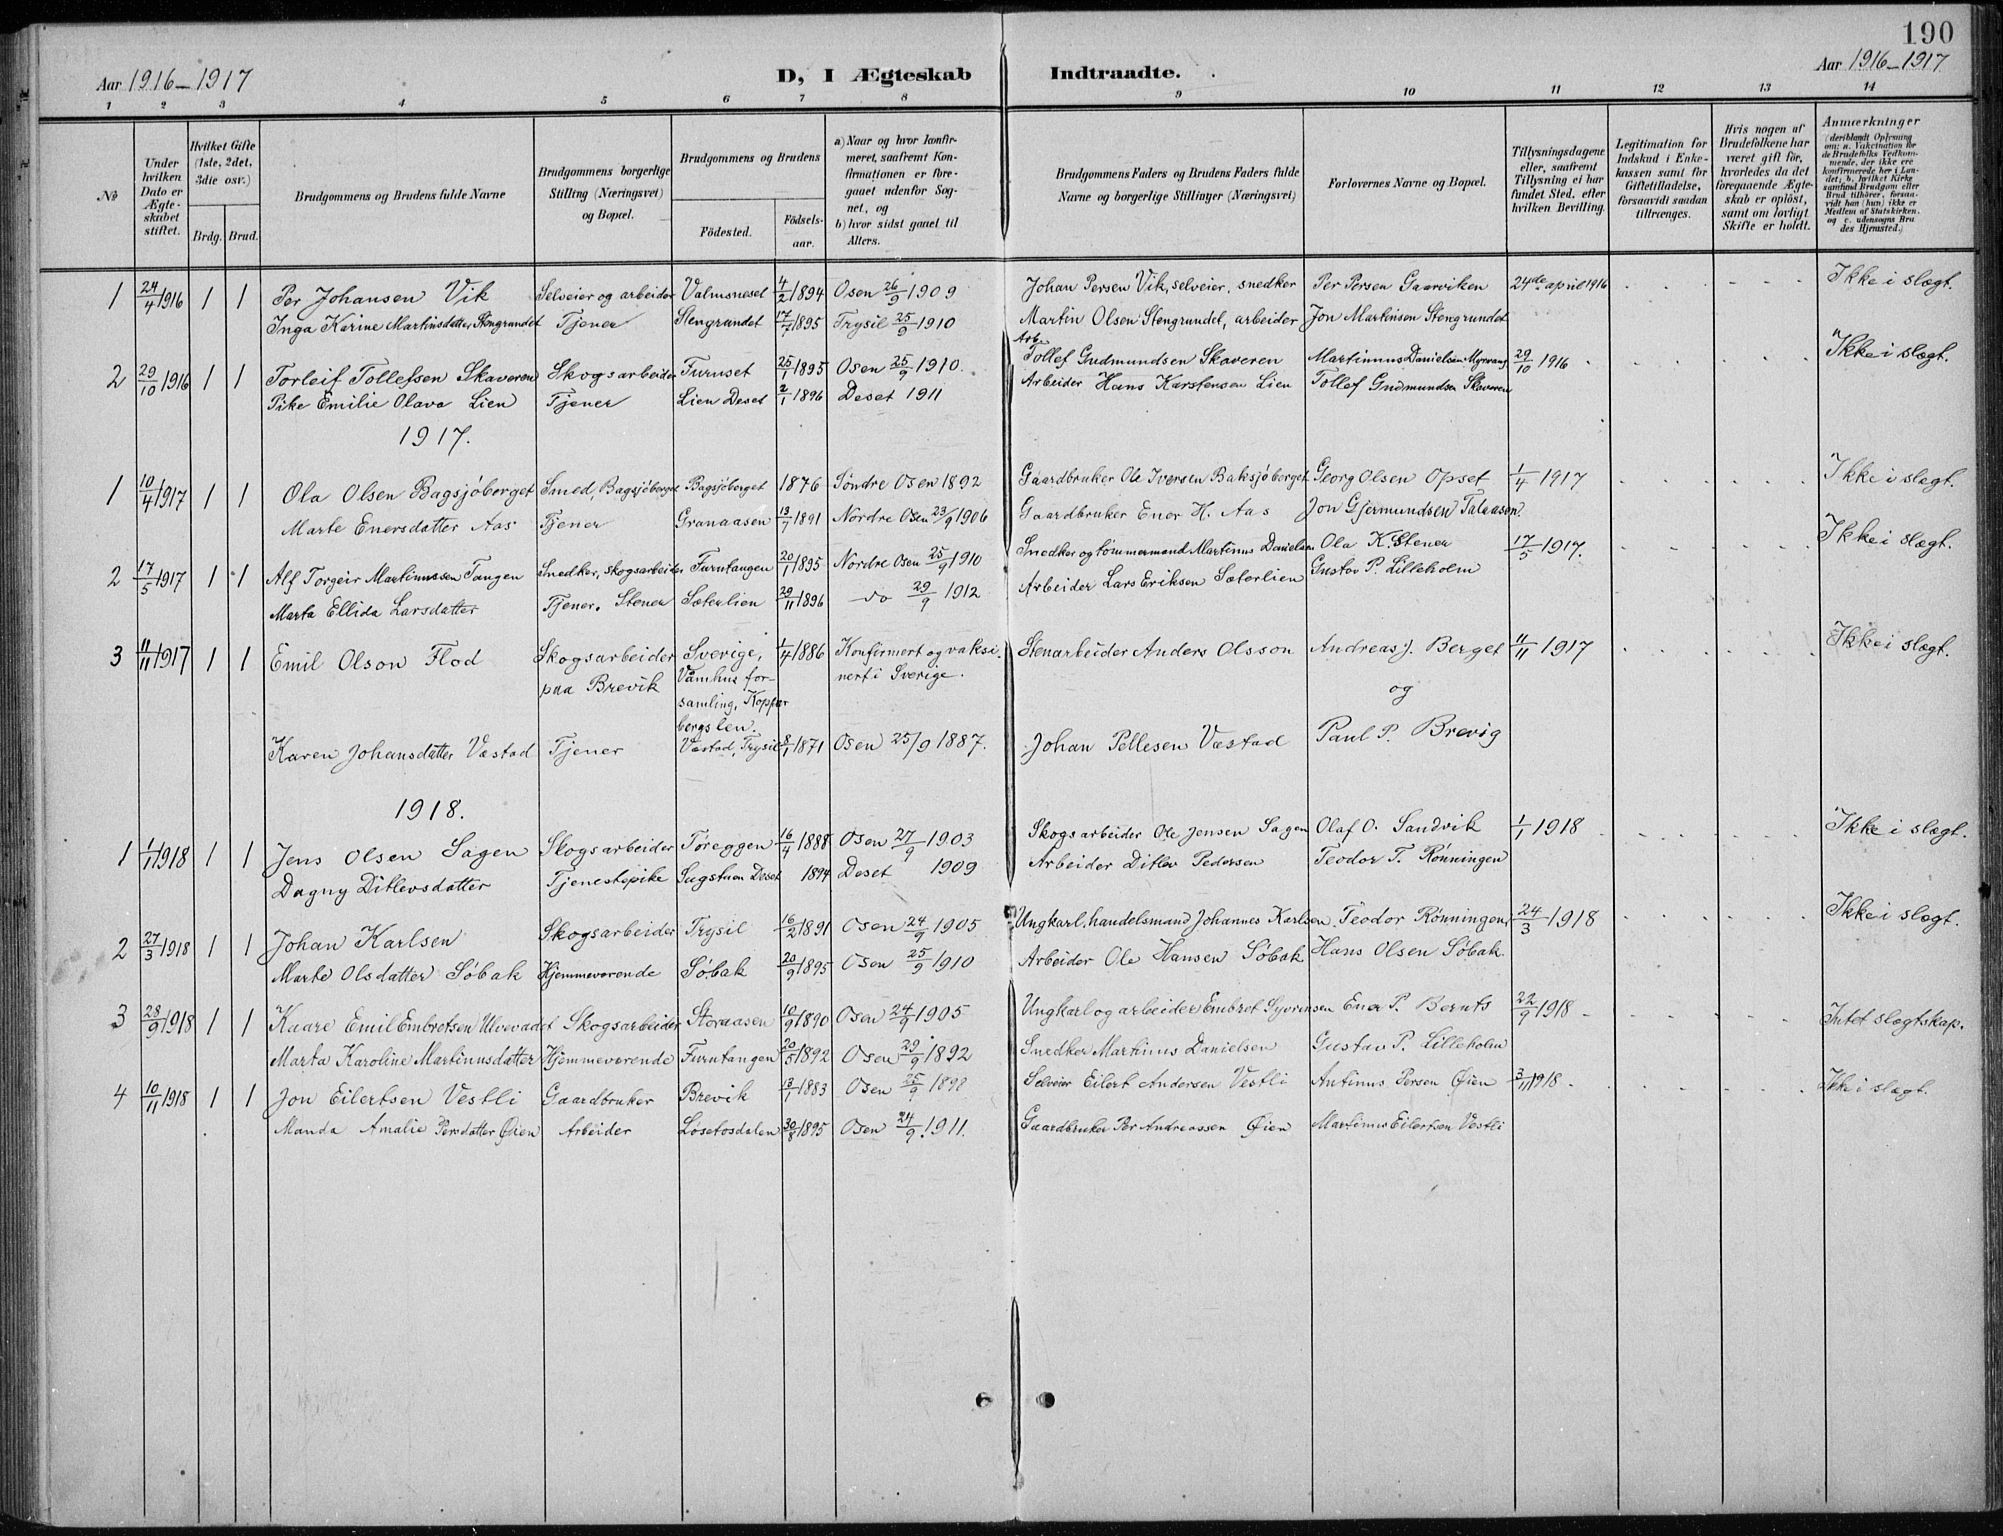 190
Aar 1916-1917
D, I Ægteskab Indtraadte.
Aar 1916-1917
1 2 3 4 5 6 7 8 9 10 11 12 13 14
№
Under hvilken Dato er Ægteskabet stiftet.
Hvilket Gifte (1ste, 2det, 3die osv.)
Brdg. Brud.
Brudgommens og Brudens fulde Navne
Brudgommens borgerlige Stilling (Næringsvei) og Bopæl.
Brudgommens og Brudens
Födested.
Födselsaar.
a) Naar og hvor konfirmeret, saafremt Konfirmationen er foregaaet udenfor Sognet, og
b) hvor sidst gaaet til Alters.
Brudgommens Faders og Brudens Faders fulde Navne og borgerlige Stillinger (Næringsvei)
Forlovernes Navne og Bopæl.
Tillysningsdagene eller, saafremt Tillysning ei har fundet Sted, efter hvilken Bevilling.
Legitimation for Indskud i Enkekassen samt for Giftetilladelse, forsaavidt saadan tiltrænges.
Hvis nogen af Brudefolkene har været gift för, hvorledes da det foregaaende Ægteskab er oplöst, samt om lovligt Skifte er holdt.
Anmærkninger (deriblandt Oplysning om: a. Vakcination for de Brudefolks Vedkommende, der ikke ere konfirmerede her i Landet; b. hvilket Kirkesamfund Brudgom eller Brud tilhörer, forsaavidt han (hun) ikke er Medlem af Statskirken, og c. udensogns Brudes Hjemsted.)
1 24/4 1916 1 1 Per Johansen Vik Selveier og arbeider Valmsneset 4/2 1894 Osen 26/9 1909 Johan Persen Vik, selveier, snedker Per Persen Gaarviken 24de april 1916 Ikke i slægt.
Inga Karine Martinsdatter Stengrundet Tjener Stengrundet 17/7 1895 Trysil 25/9 1910 Martin Olsen Stengrundet, arbeider Jon Martinsen Stengrundet
2 29/10 1916 1 1 Torleif Tollefsen Skaveren Skogsarbeider Furuset 25/1 1895 Osen 25/9 1910 Arb. Tollef Gudmundsen Skaveren Martinnus Danielsen Myrvang 29/10 1916 Ikke i slægt.
Pike Emilie Olava Lien Tjener Lien Deset 2/1 1896 Deset 1911 Arbeider Hans Karstensen Lien Tollef Gudmundsen Skaveren
1917.
1 10/4 1917 1 1 Ola Olsen Bagsjöberget Smed, Bagsjöberget Bagsjöberget 1876 Söndre Osen 1892 Gaardbruker Ole Iversen Baksjöberget Georg Olsen Opset 1/4 1917 Ikke i slægt.
Marte Enersdatter Aas Tjener Granaasen 13/7 1891 Nordre Osen 23/9 1906 Gaardbruker Ener H. Aas Jon Gjermundsen Talaasen.
2 17/5 1917 1 1 Alf Torgeir Martinussen Tangen Snedker, skogsarbeider Furutangen 20/1 1895 Nordre Osen 25/9 1910 Snedker og tömmermand Martinus Danielsen Ola K. Stener 17/5 1917. Ikke i slægt.
Marta Ellida Larsdatter Tjener. Stener Sæterlien 29/11 1896 do 29/9 1912 Arbeider Lars Eriksen Sæterlien Gustav P. Lilleholm
3 11/11 1917 1 1 Emil Olson Flod Skogsarbeider Sverige, 1/4 1886 Konfirmert og vaksi- Stenarbeider Anders Olsson Andreas J. Berget 11/11 1917 Ikke i slægt.
paa Brevik Våmhus for- nert i Sverige. og
samling, Koppar
bergs len.
Karen Johansdatter Væstad Tjener Væstad, Trysil 8/1 1871 Osen 25/9 1887. Johan Pellesen Væstad Paul P. Brevig
1918.
1 1/1 1918 1 1 Jens Olsen Sagen Skogsarbeider Töreggen 16/4 1888 Osen 27/9 1903 Skogsarbeider Ole Jensen Sagen Olaf O. Sandvik 1/1 1918 Ikke i slægt.
Dagny Ditlevsdatter Tjenestepike Sugstuen Deset 1894 Deset 1909 Arbeider Ditlev Pedersen Teodor T. Rönningen
2 27/3 1918 1 1 Johan Karlsen Skogsarbeider Trysil 16/2 1891 Osen 24/9 1905 Ungkarl, handelsmand Johannes Karlsen Teodor Rönningen 24/3 1918 Ikke i slægt.
Marte Olsdatter Söbak Hjemmeværende Söbak 20/9 1895 Osen 25/9 1910 Arbeider Ole Hansen Söbak Hans Olsen Söbak.
3 28/9 1918 1 1 Kaare Emil Embretsen Ulvevadet Skogsarbeider Storaasen 10/9 1890 Osen 24/9 1905 Ungkarl og arbeider Embret Syversen Ener P. Bernts 22/9 1918 Intet slægtskap.
Marta Karoline Martinusdatter Hjemmeværende Furutangen 20/5 1892 Osen 29/9 1892 Snedker Martinus Danielsen Gustav P. Lilleholm
4 10/11 1918 1 1 Jon Eilertsen Vestli Gaardbruker Brevik 13/1 1883 Osen 25/9 1898 Selveier Eilert Andersen Vestli Antinus Persen Øien 3/11 1918 Ikke i slægt.
Manda Amalie Persdatter Øien Arbeider Lösetosdalen 30/8 1895 Osen 24/9 1911. Gaardbruker Per Andreassen Øien Martinus Eilertsen Vestli